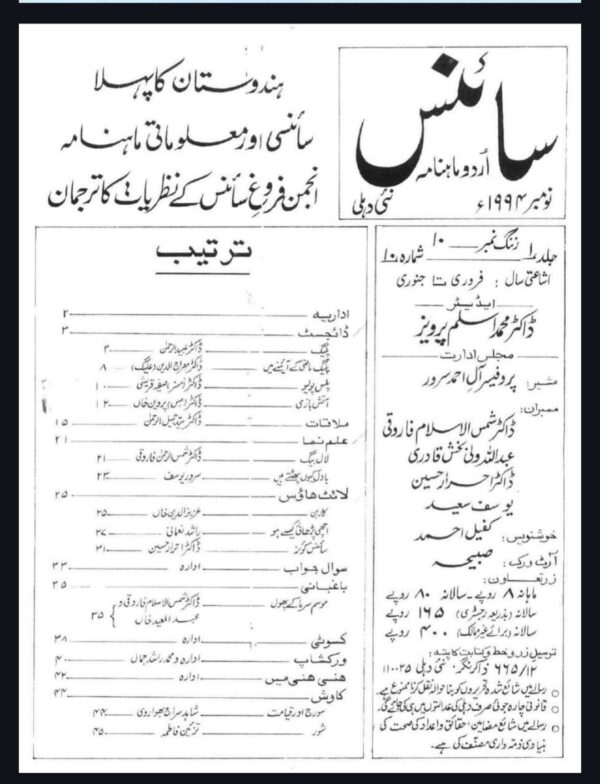 سائنس
اُردو ماہنامہ
نئی دہلی
نومبر ۱۹۹۴ء
ہندوستان کا پہلا
سائنسی اور معلوماتی ماہنامہ
انجمن فروغِ سائنس کے نظریات کا ترجمان
جلد ۱ رننگ نمبر ۱۰ شمارہ ۱۰
اشاعتی سال : فروری تا جنوری
ایڈیٹر
ڈاکٹر محمد اسلم پرویز
مجلس ادارت
مشیر: پروفیسر آل احمد سرور
ممبران:
ڈاکٹر شمس الاسلام فاروقی
عبداللہ ولی بخش قادری
ڈاکٹر احرار حسین
یوسف سعید
خوشنویس: کفیل احمد
آرٹ ورک: صبیحہ
زر تعاون:
ماہانہ ۸ روپے - سالانہ ۸۰ روپے
سالانہ (بذریعہ رجسٹری) ۱۶۵ روپے
سالانہ (برائے غیر ممالک) ۴۰۰ روپے
ترسیل زر و خط و کتابت کا پتہ:
۶۶۵/۱۲ ذاکر نگر، نئی دہلی ۱۱۰۰۲۵
○ رسالے میں شائع شدہ تحریروں کو بنا حوالہ نقل کرنا ممنوع ہے۔
○ قانونی چارہ جوئی صرف دہلی کی عدالتوں میں ہی کی جائے گی۔
○ رسالے میں شائع مضامین، حقائق و اعداد کی صحت کی
بنیادی ذمہ داری مصنف کی ہے۔
ترتیب
اداریہ ۲
ڈائجسٹ ۳
پلیگ ڈاکٹر عبید الرحمٰن ۳
پلیگ ماضی کے آئینے میں ڈاکٹر معراج الدین (علیگ) ۸
پلس پولیو ڈاکٹر صغیر قریشی ۱۰
آتش بازی ڈاکٹر (مس) پروین خاں ۱۲
ملاقات ڈاکٹر سید جمیل الرحمٰن ۱۵
علم نما ۲۱
لال بیگ ڈاکٹر شمس الرحمٰن فاروقی ۲۱
بادل کیوں پھٹتے ہیں سرور یوسف ۲۳
لائٹ ہاؤس ۲۵
کاربن عزیز الدین خاں ۲۵
اچھی پڑھائی کیسے ہو راشد نعمانی ۲۷
سائنس کوئز ڈاکٹر احرار حسین ۳۱
سوال جواب ادارہ ۳۳
باغبانی ۳۵
موسم سرما کے پھول ڈاکٹر شمس الاسلام فاروقی و
عبد المعید خاں ۳۵
کسوٹی ادارہ ۳۸
ورکشاپ ادارہ و محمد راشد جمال ۴۰
ہنسی ہنسی میں ادارہ ۴۲
کاوش ۴۴
سورج اور قیامت شاہد سراج بھواروی ۴۴
شور تزئین فاطمہ ۴۵